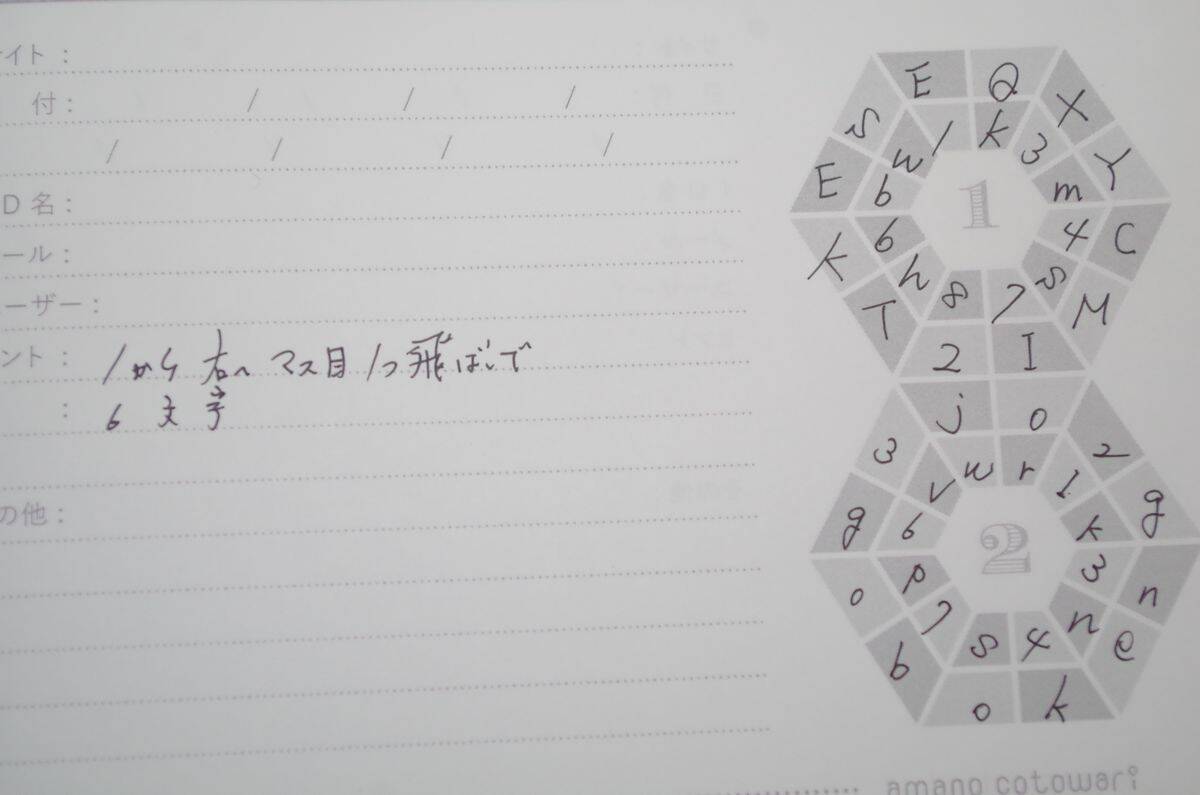 サイト：
付： / / /
/ / / /
ID名：
メール：
ユーザー：
ヒント： 1から 右へ マス目 1つ飛ばしで
： 6 文字
その他：
E Q
S X
E Y
K C
T M
2 I
1 k
w 3
b m
6 4
h s
8 7
1
j o
3 2
g g
o n
b e
o k
w r
v 1
6 k
p 3
7 n
s 4
2
amano cotowari